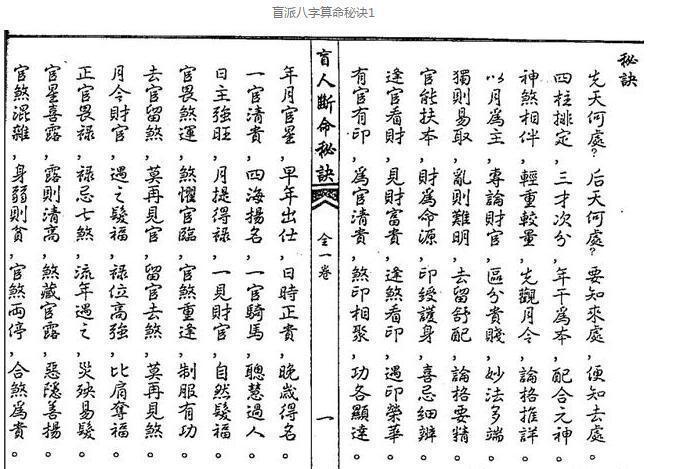 盲派八字算命秘诀1
秘訣
先天何處？后天何處？要知來處，便知去處。
四柱排定，三才次分，年干為本，配合元神
神煞相伴，輕重較量，先觀月令，論格推詳
以月為主，專論財官，區分貴賤，妙法多端
獨則易取，亂則難明，去留舒配，論格要精
官能扶本，財為命源，印綬護身，喜忌細辨
逢官看財，見財富貴，逢煞看印，遇印榮華
有官有印，為官清貴，煞印相聚，功各顯達
盲人斷命秘訣
全一卷
一
年月官星，早年出仕，日時正貴，晚歲得名。
一官清貴，四海揚名，一官騎馬，聰慧過人。
日主強旺，月提得祿，一見財官，自然髮福。
官畏煞運，煞懼官臨，官煞重逢，制服有功。
去官留煞，莫再見官，留官去煞，莫再見煞。
月令財官，遇之髮福，祿位高強，比肩奪福。
正官畏祿，祿忌七煞，流年遇之，災殃易髮。
官星喜露，露則清高，煞藏官露，惡隱善揚。
官煞混雜，身弱則貧，官煞兩停，合煞為貴。